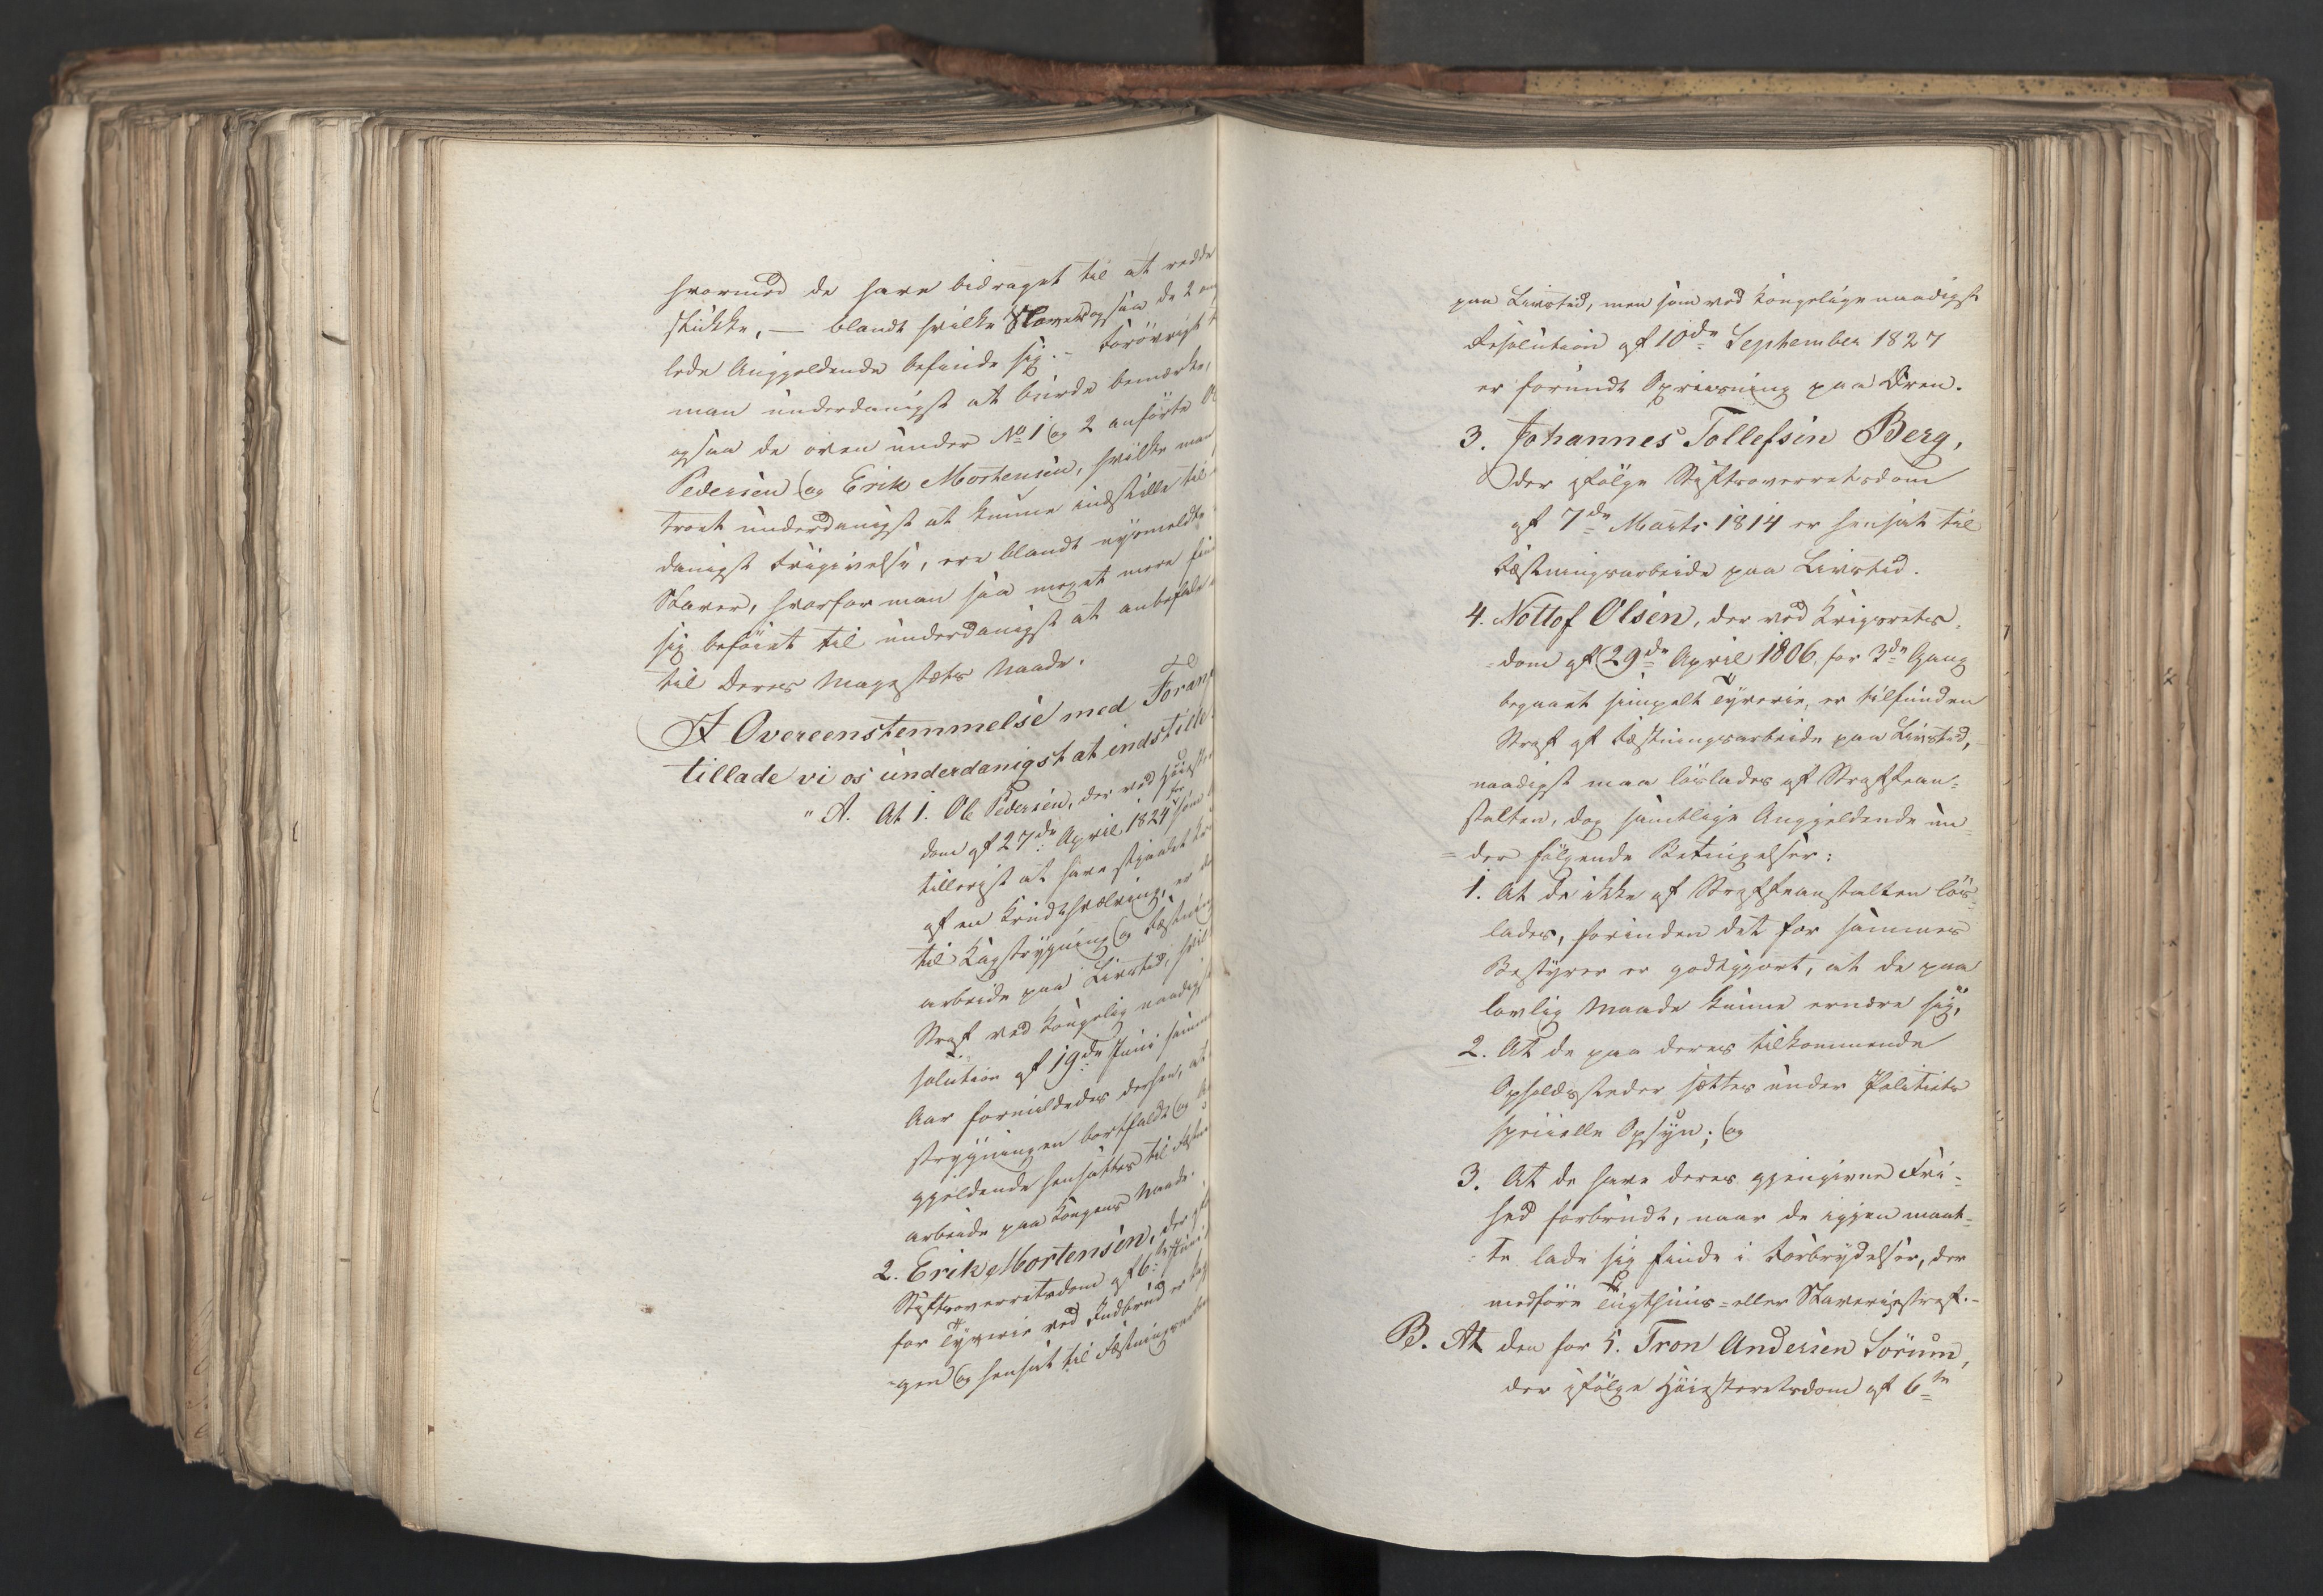 hvormed de have bidraget til at redde
stükke, — blandt hvilke Slaver ogsaa de 2 
lede Angjeldende befinde sig. - Forövrigt
man ünderdanigst at bürde bemærke,
ogsaa de oven ünder No 1 og 2 anförte
Pedersen og Erik Mortensen, hvilke man
troet ünderdanigst at künne indstille til
danigst Frigivelse, ere blandt nysmeldte
Slaver, hvorfor man saa meget mere
sig beföiet til ünderdanigst at anbefale
til Deres Majestæts Naade.
I Overeenstemmelse med Foran
tillade vi os ünderdanigst at indstille:
" A. At 1. Ole Pedersen, der ved Höieste
dom af 27de April 1824 for
tilligst at have stjaalet
af en Kründthvælving, er
til Kagstrygning og Fæstnings
arbeide paa Livstid, hvil
Straf ved Kongelig naadigst
solution af 19de Juni samme
Aar formildedes derhen, at
strygningen bortfaldt og
gjeldende hensattes til Fæstn
arbeide paa Kongens Naade.
2. Erik Mortensen, der
Stiftsoverretsdom af 6te Juni
for Tyverie ved Indbrud er
gen og hensat til Fæstningsarbei
paa Livstid, men som ved Kongelige naadigst
Resolütion af 10de September 1827
er foründt Oprivsning paa Æren.
3. Johannes Tollefsen Berg,
der ifölge Stiftsoverretsdom
af 7de Marts 1814 er hensat til
Fæstningsarbeide paa Livstid.
4. Nottof Olsen, der ved Krigsrets-
dom af 29de April 1806, for 3de Gang
begaaet simpelt Tyverie, er tilfünden
Straf af Fæstningsarbeide paa Livstid,
naadigst maa löslades af Straffean-
stalten, dog samtlige Angjeldende ün-
der fölgende Betingelser:
1. At de ikke af Straffeanstalten lös-
lades, forinden det for sammes
Bestyrer er godtgjort, at de paa
lovlig Maade künne ernære sig,
2. At de paa deres tilkommende
Opholdssteder sættes ünder Politiets
specielle Opsyn; og
3. At de have deres gjengivne Fri-
hed forbrüdt, naar de igjen maat-
te lade sig finde i Forbrydelser, der
medföre Tügthüüs- eller Slaveriestraf.-
B. At den for 5. Tron Andersen Sörüm,
der ifölge Höiesteretsdom af 6te